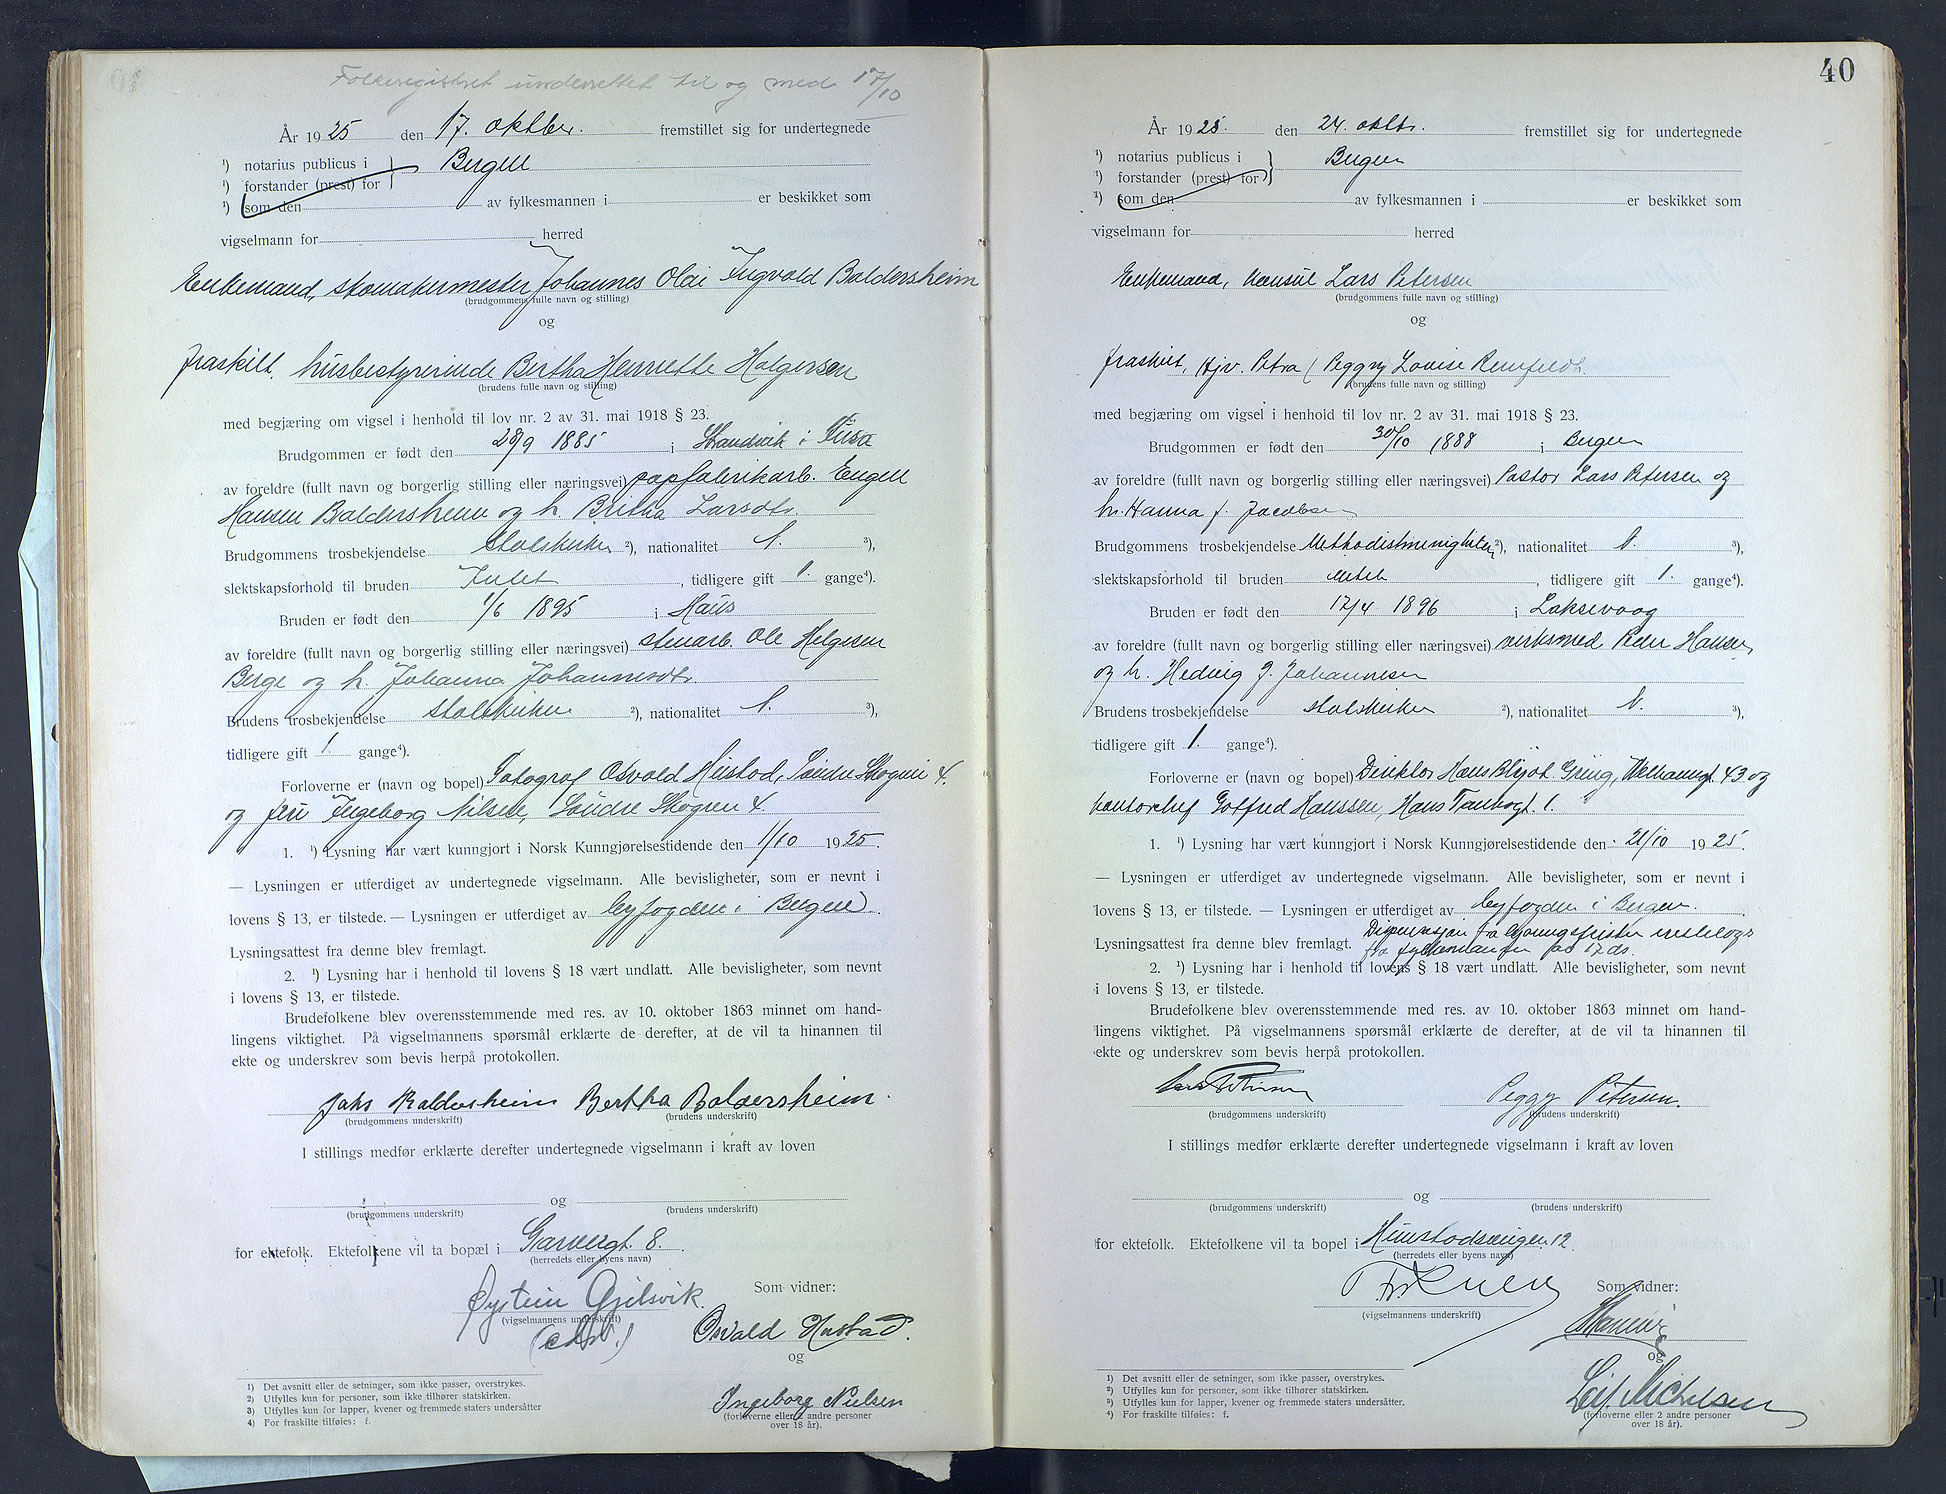 Folkeregistret underrettet til og med 17/10
År 1925 den 17. oktber. fremstillet sig for undertegnede
¹) notarius publicus i Bergen
¹) forstander (prest) for
¹) som den av fylkesmannen i er beskikket som
vigselmann for herred
Enkemand, skomakermester Johannes Olai Ingvald Baldersheim
(brudgommens fulle navn og stilling)
og
fraskilt. husbestyrerinde Bertha Henriette Halgersen
(brudens fulle navn og stilling)
med begjæring om vigsel i henhold til lov nr. 2 av 31. mai 1918 § 23.
Brudgommen er født den 28/9 1885 i Strandvik i Fusa
av foreldre (fullt navn og borgerlig stilling eller næringsvei) papfabrikarb. Engel
Hansen Baldersheim og h. Britha Larsdtr.
Brudgommens trosbekjendelse statskirken ²), nationalitet N. ³),
slektskapsforhold til bruden Intet, tidligere gift 1. gange⁴).
Bruden er født den 1/6 1895 i Haus
av foreldre (fullt navn og borgerlig stilling eller næringsvei) stenarb. Ole Helgesen
Berge og h. Johanna Johannesdtr.
Brudens trosbekjendelse statskirken ²), nationalitet N. ³),
tidligere gift 1. gange⁴).
Forloverne er (navn og bopel) Fotograf Osvald Hustad, Søndre Skogvei 4.
og fru Ingeborg Nilsen, Søndre Skogvei 4.
1. ¹) Lysning har vært kunngjort i Norsk Kunngjørelsestidende den 1/10 1925.
— Lysningen er utferdiget av undertegnede vigselmann. Alle bevisligheter, som er nevnt i
lovens § 13, er tilstede. — Lysningen er utferdiget av byfogden i Bergen.
Lysningsattest fra denne blev fremlagt.
2. ¹) Lysning har i henhold til lovens § 18 vært undlatt. Alle bevisligheter, som nevnt
i lovens § 13, er tilstede.
Brudefolkene blev overensstemmende med res. av 10. oktober 1863 minnet om hand-
lingens viktighet. På vigselmannens spørsmål erklærte de derefter, at de vil ta hinannen til
ekte og underskrev som bevis herpå protokollen.
Johs Baldersheim Bertha Baldersheim.
(brudgommens underskrift) (brudens underskrift)
I stillings medfør erklærte derefter undertegnede vigselmann i kraft av loven
og
(brudgommens underskrift) (brudens underskrift)
for ektefolk. Ektefolkene vil ta bopæl i Garvergt. 8.
(herredets eller byens navn)
Øystein Gjelsvik. Som vidner:
(vigselmannens underskrift)
Osvald Hustad.
og
Ingeborg Nielsen
(forloverne eller 2 andre personer
over 18 år).
1) Det avsnitt eller de setninger, som ikke passer, overstrykes.
2) Utfylles kun for personer, som ikke tilhører statskirken.
3) Utfylles kun for lapper, kvener og fremmede staters undersåtter
4) For fraskilte tilføies: f.
40
År 1925. den 24. oktbr. fremstillet sig for undertegnede
¹) notarius publicus i Bergen
¹) forstander (prest) for
¹) som den av fylkesmannen i er beskikket som
vigselmann for herred
Enkemand, konsul Lars Petersen
(brudgommens fulle navn og stilling)
og
fraskilt, Hjv. Petra (Peggy Lovise
(brudens fulle navn og stilling)
med begjæring om vigsel i henhold til lov nr. 2 av 31. mai 1918 § 23.
Brudgommen er født den 30/10 1888 i Bergen
av foreldre (fullt navn og borgerlig stilling eller næringsvei) Pastor Lars Petersen og
h. Hanna f. Jacobsen
Brudgommens trosbekjendelse Methodistmenigheten ²), nationalitet N. ³),
slektskapsforhold til bruden intet, tidligere gift 1. gange⁴).
Bruden er født den 17/4 1896 i Laksevaag
av foreldre (fullt navn og borgerlig stilling eller næringsvei) verksmed Peder Hansen
og h. Hedvig f. Johannesen
Brudens trosbekjendelse statskirken ²), nationalitet N. ³),
tidligere gift 1. gange⁴).
Forloverne er (navn og bopel) Direktør Hans Blydt Grieg, Welhavensgt. 43 og
kontorchef Gotfred Hanssen, Hans Tanksgt. 1.
1. ¹) Lysning har vært kunngjort i Norsk Kunngjørelsestidende den 21/10 1925.
— Lysningen er utferdiget av undertegnede vigselmann. Alle bevisligheter, som er nevnt i
lovens § 13, er tilstede. — Lysningen er utferdiget av byfogden i Bergen.
Lysningsattest fra denne blev fremlagt. Dispensasjon fra lysningsfristen
fra fylkesmannen 17 ds.
2. ¹) Lysning har i henhold til lovens § 18 vært undlatt. Alle bevisligheter, som nevnt
i lovens § 13, er tilstede.
Brudefolkene blev overensstemmende med res. av 10. oktober 1863 minnet om hand-
lingens viktighet. På vigselmannens spørsmål erklærte de derefter, at de vil ta hinannen til
ekte og underskrev som bevis herpå protokollen.
Lars Petersen Peggy Petersen.
(brudgommens underskrift) (brudens underskrift)
I stillings medfør erklærte derefter undertegnede vigselmann i kraft av loven
og
(brudgommens underskrift) (brudens underskrift)
for ektefolk. Ektefolkene vil ta bopel i 12.
(herredets eller byens navn)
Som vidner:
(vigselmannens underskrift)
og
Leif Michelsen
(forloverne eller 2 andre personer
over 18 år).
¹) Det avsnitt eller de setninger, som ikke passer, overstrykes.
²) Utfylles kun for personer, som ikke tilhører statskirken.
³) Utfylles kun for lapper, kvener og fremmede staters undersåtter.
⁴) For fraskilte tilføies: f.